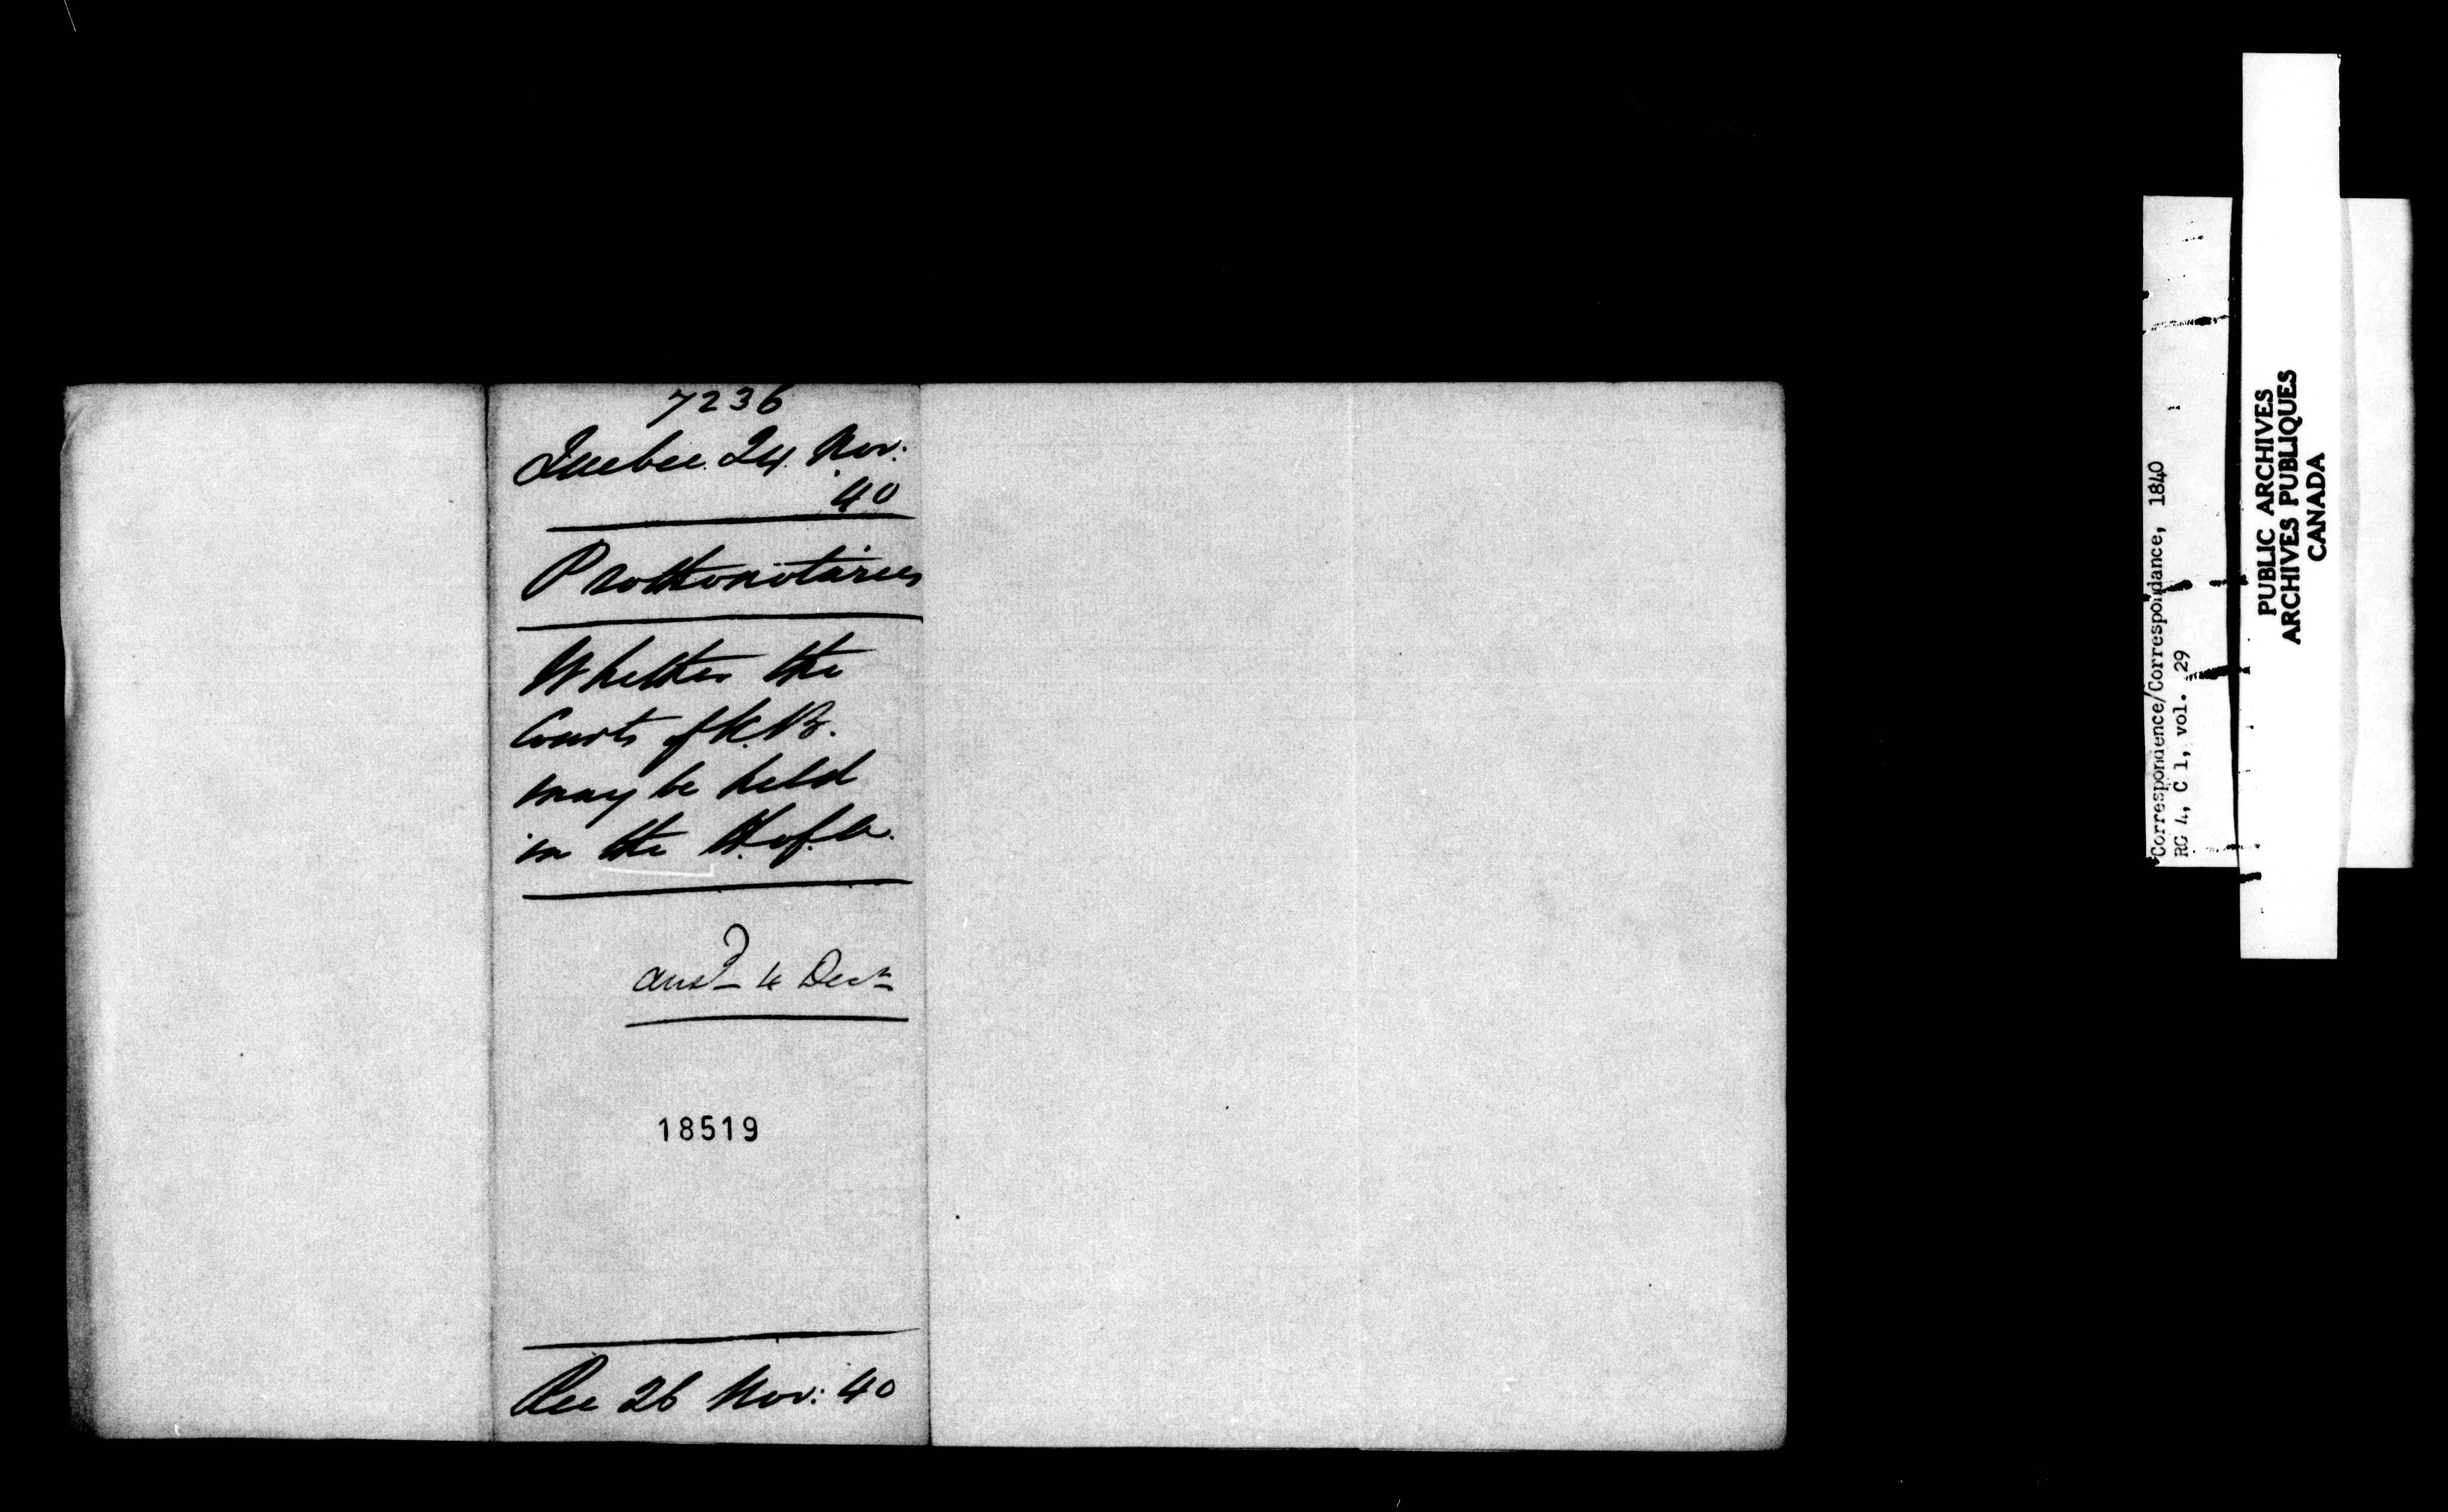 7236
Quebec. 24. Nov:
40
Prothonotaries
Whether the
Courts of K. B.
may be held
in the H. of A.
ansd 4 Decr
18519
Rec 26 Nov: 40
Correspondence/Correspondance, 1840
RG 4, C 1, vol. 29
PUBLIC ARCHIVES
ARCHIVES PUBLIQUES
CANADA